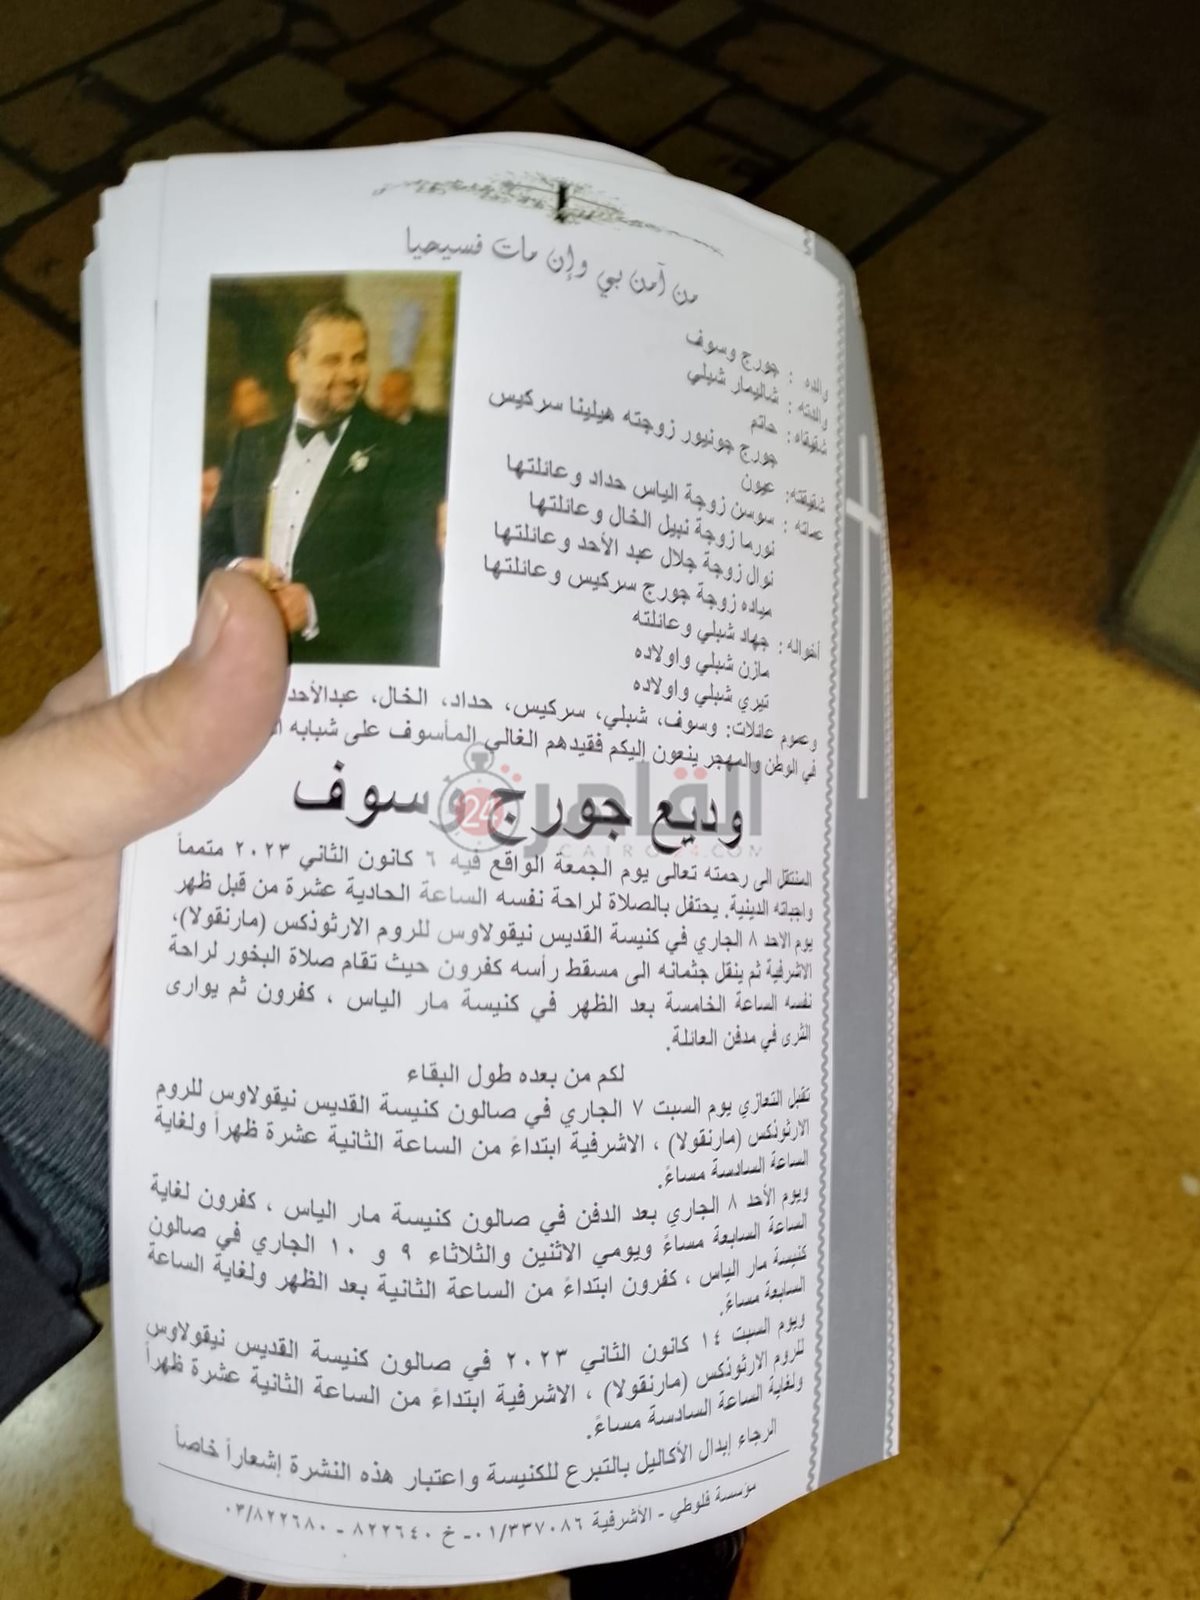 من آمن بي وإن مات فسيحيا
والده : جورج وسوف
والدته : شاليمار شبلي
شقيقاه : حاتم
جورج جونيور زوجته هيلينا سركيس
شقيقته: عيون
عماته : سوسن زوجة الياس حداد وعائلتها
نورما زوجة نبيل الخال وعائلتها
نوال زوجة جلال عبد الأحد وعائلتها
مياده زوجة جورج سركيس وعائلتها
أخواله : جهاد شبلي وعائلته
مازن شبلي واولاده
تيري شبلي واولاده
وعموم عائلات: وسوف، شبلي، سركيس، حداد، الخال، عبدالأحد
في الوطن والمهجر ينعون اليكم فقيدهم الغالي المأسوف على شبابه
وديع جورج وسوف
القاهرة 24
CAIRO24.COM
المنتقل الى رحمته تعالى يوم الجمعة الواقع فيه ٦ كانون الثاني ٢٠٢٣ متمماً
واجباته الدينية. يحتفل بالصلاة لراحة نفسه الساعة الحادية عشرة من قبل ظهر
يوم الاحد ٨ الجاري في كنيسة القديس نيقولاوس للروم الارثوذكس (مارنقولا)،
الاشرفية ثم ينقل جثمانه الى مسقط رأسه كفرون حيث تقام صلاة البخور لراحة
نفسه الساعة الخامسة بعد الظهر في كنيسة مار الياس ، كفرون ثم يوارى
الثرى في مدفن العائلة.
لكم من بعده طول البقاء
تقبل التعازي يوم السبت ٧ الجاري في صالون كنيسة القديس نيقولاوس للروم
الارثوذكس (مارنقولا) ، الاشرفية ابتداءً من الساعة الثانية عشرة ظهراً ولغاية
الساعة السادسة مساءً.
ويوم الأحد ٨ الجاري بعد الدفن في صالون كنيسة مار الياس ، كفرون لغاية
الساعة السابعة مساءً ويومي الاثنين والثلاثاء ٩ و ١٠ الجاري في صالون
كنيسة مار الياس ، كفرون ابتداءً من الساعة الثانية بعد الظهر ولغاية الساعة
السابعة مساءً.
ويوم السبت ١٤ كانون الثاني ٢٠٢٣ في صالون كنيسة القديس نيقولاوس
للروم الارثوذكس (مارنقولا) ، الاشرفية ابتداءً من الساعة الثانية عشرة ظهراً
ولغاية الساعة السادسة مساءً.
الرجاء إبدال الأكاليل بالتبرع للكنيسة واعتبار هذه النشرة إشعاراً خاصاً
مؤسسة فلوطي - الأشرفية ٠١/٣٣٧٠٨٦ - خ ٨٢٢٦٤٠ - ٠٣/٨٢٢٦٨٠